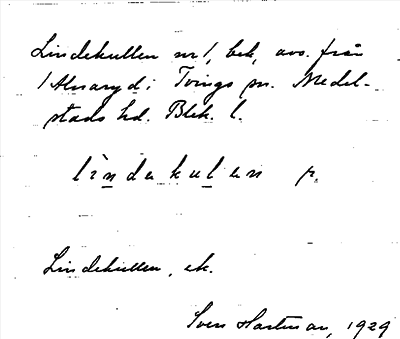 Lindekullen nr 1, bek, avs. från
1 Alnaryd i Tvings sn. Medel-
stads hd. Blek. l.
lìndekulen p.
Lindekullen, ek.
Sven Hartman, 1929